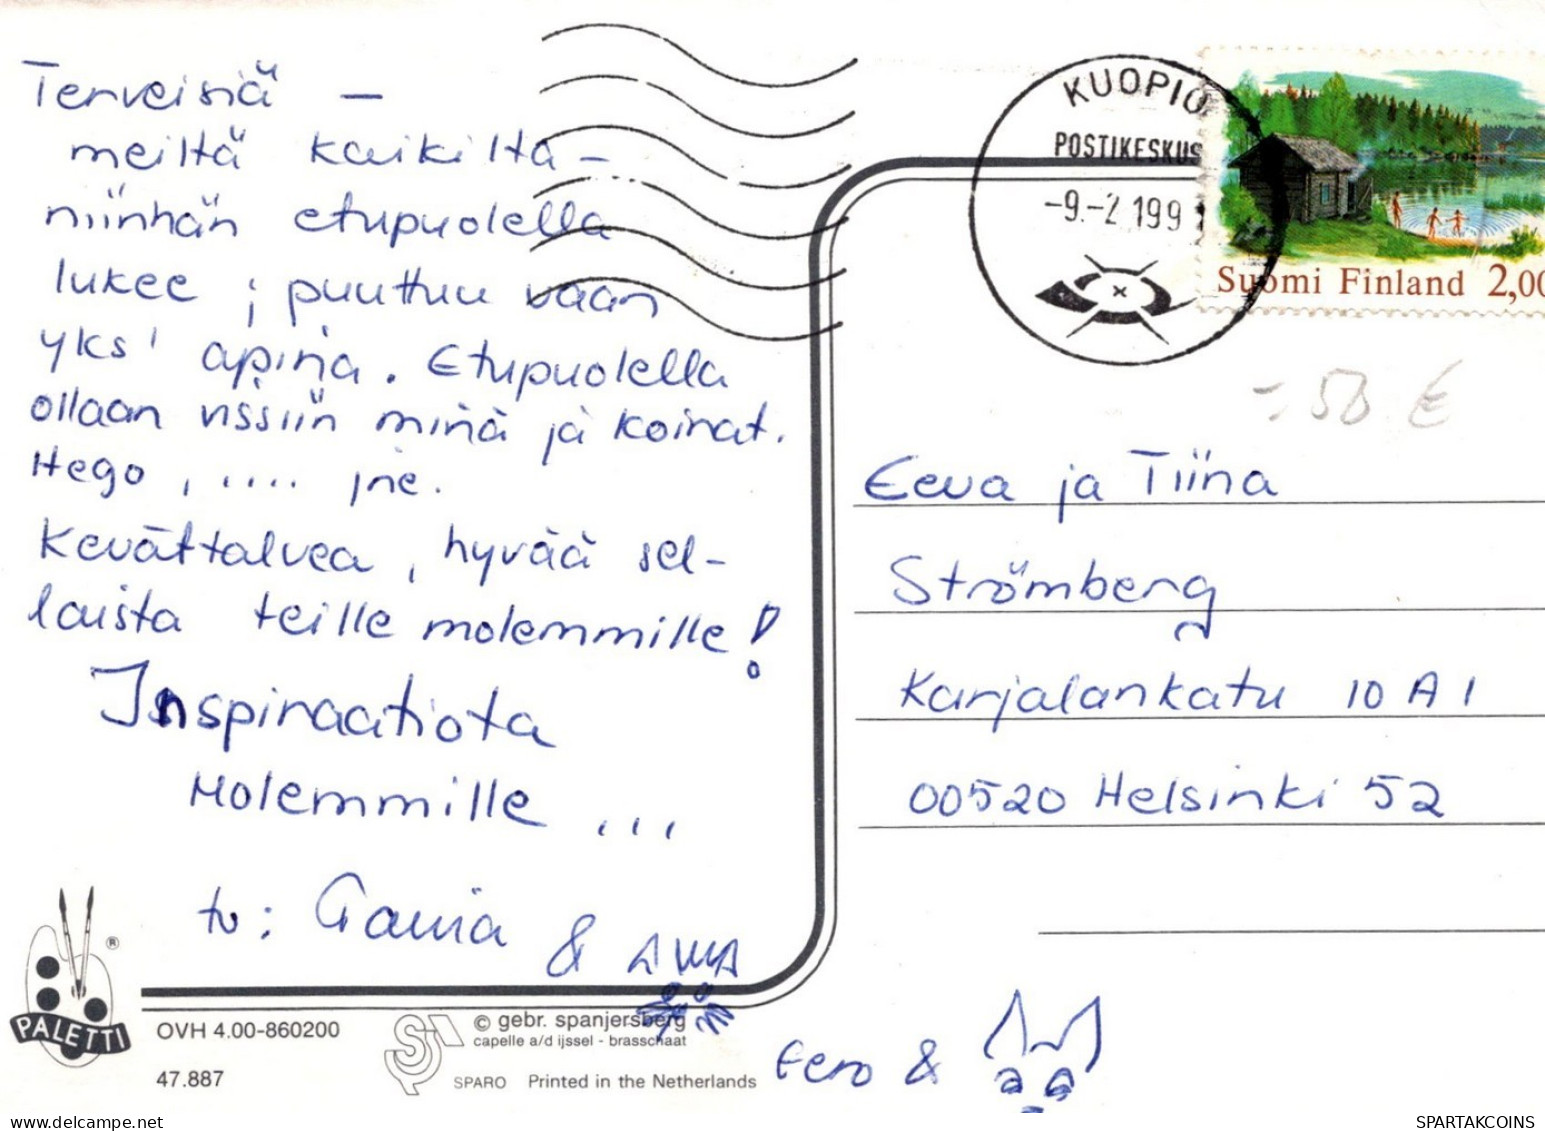 Terveisiä –
meiltä kaikilta –
niinhän etupuolella
lukee ; puuttuu vaan
yks' apina. Etupuolella
ollaan vissiin minä ja koirat.
Hego, .... jne.
Kevättalvea, hyvää sel-
laista teille molemmille!
Inspiraatiota
Molemmille ...
tv: &
Eero &
KUOPIO
POSTIKESKUS
-9.-2.199
Suomi Finland 2,00
Eeva ja Tiina
Strömberg
Karjalankatu 10 A 1
00520 Helsinki 52
PALETTI ®
OVH 4.00-860200
47.887
© gebr. spanjersberg
capelle a/d ijssel - brasschaat
SPARO Printed in the Netherlands
SPARTAKCOINS